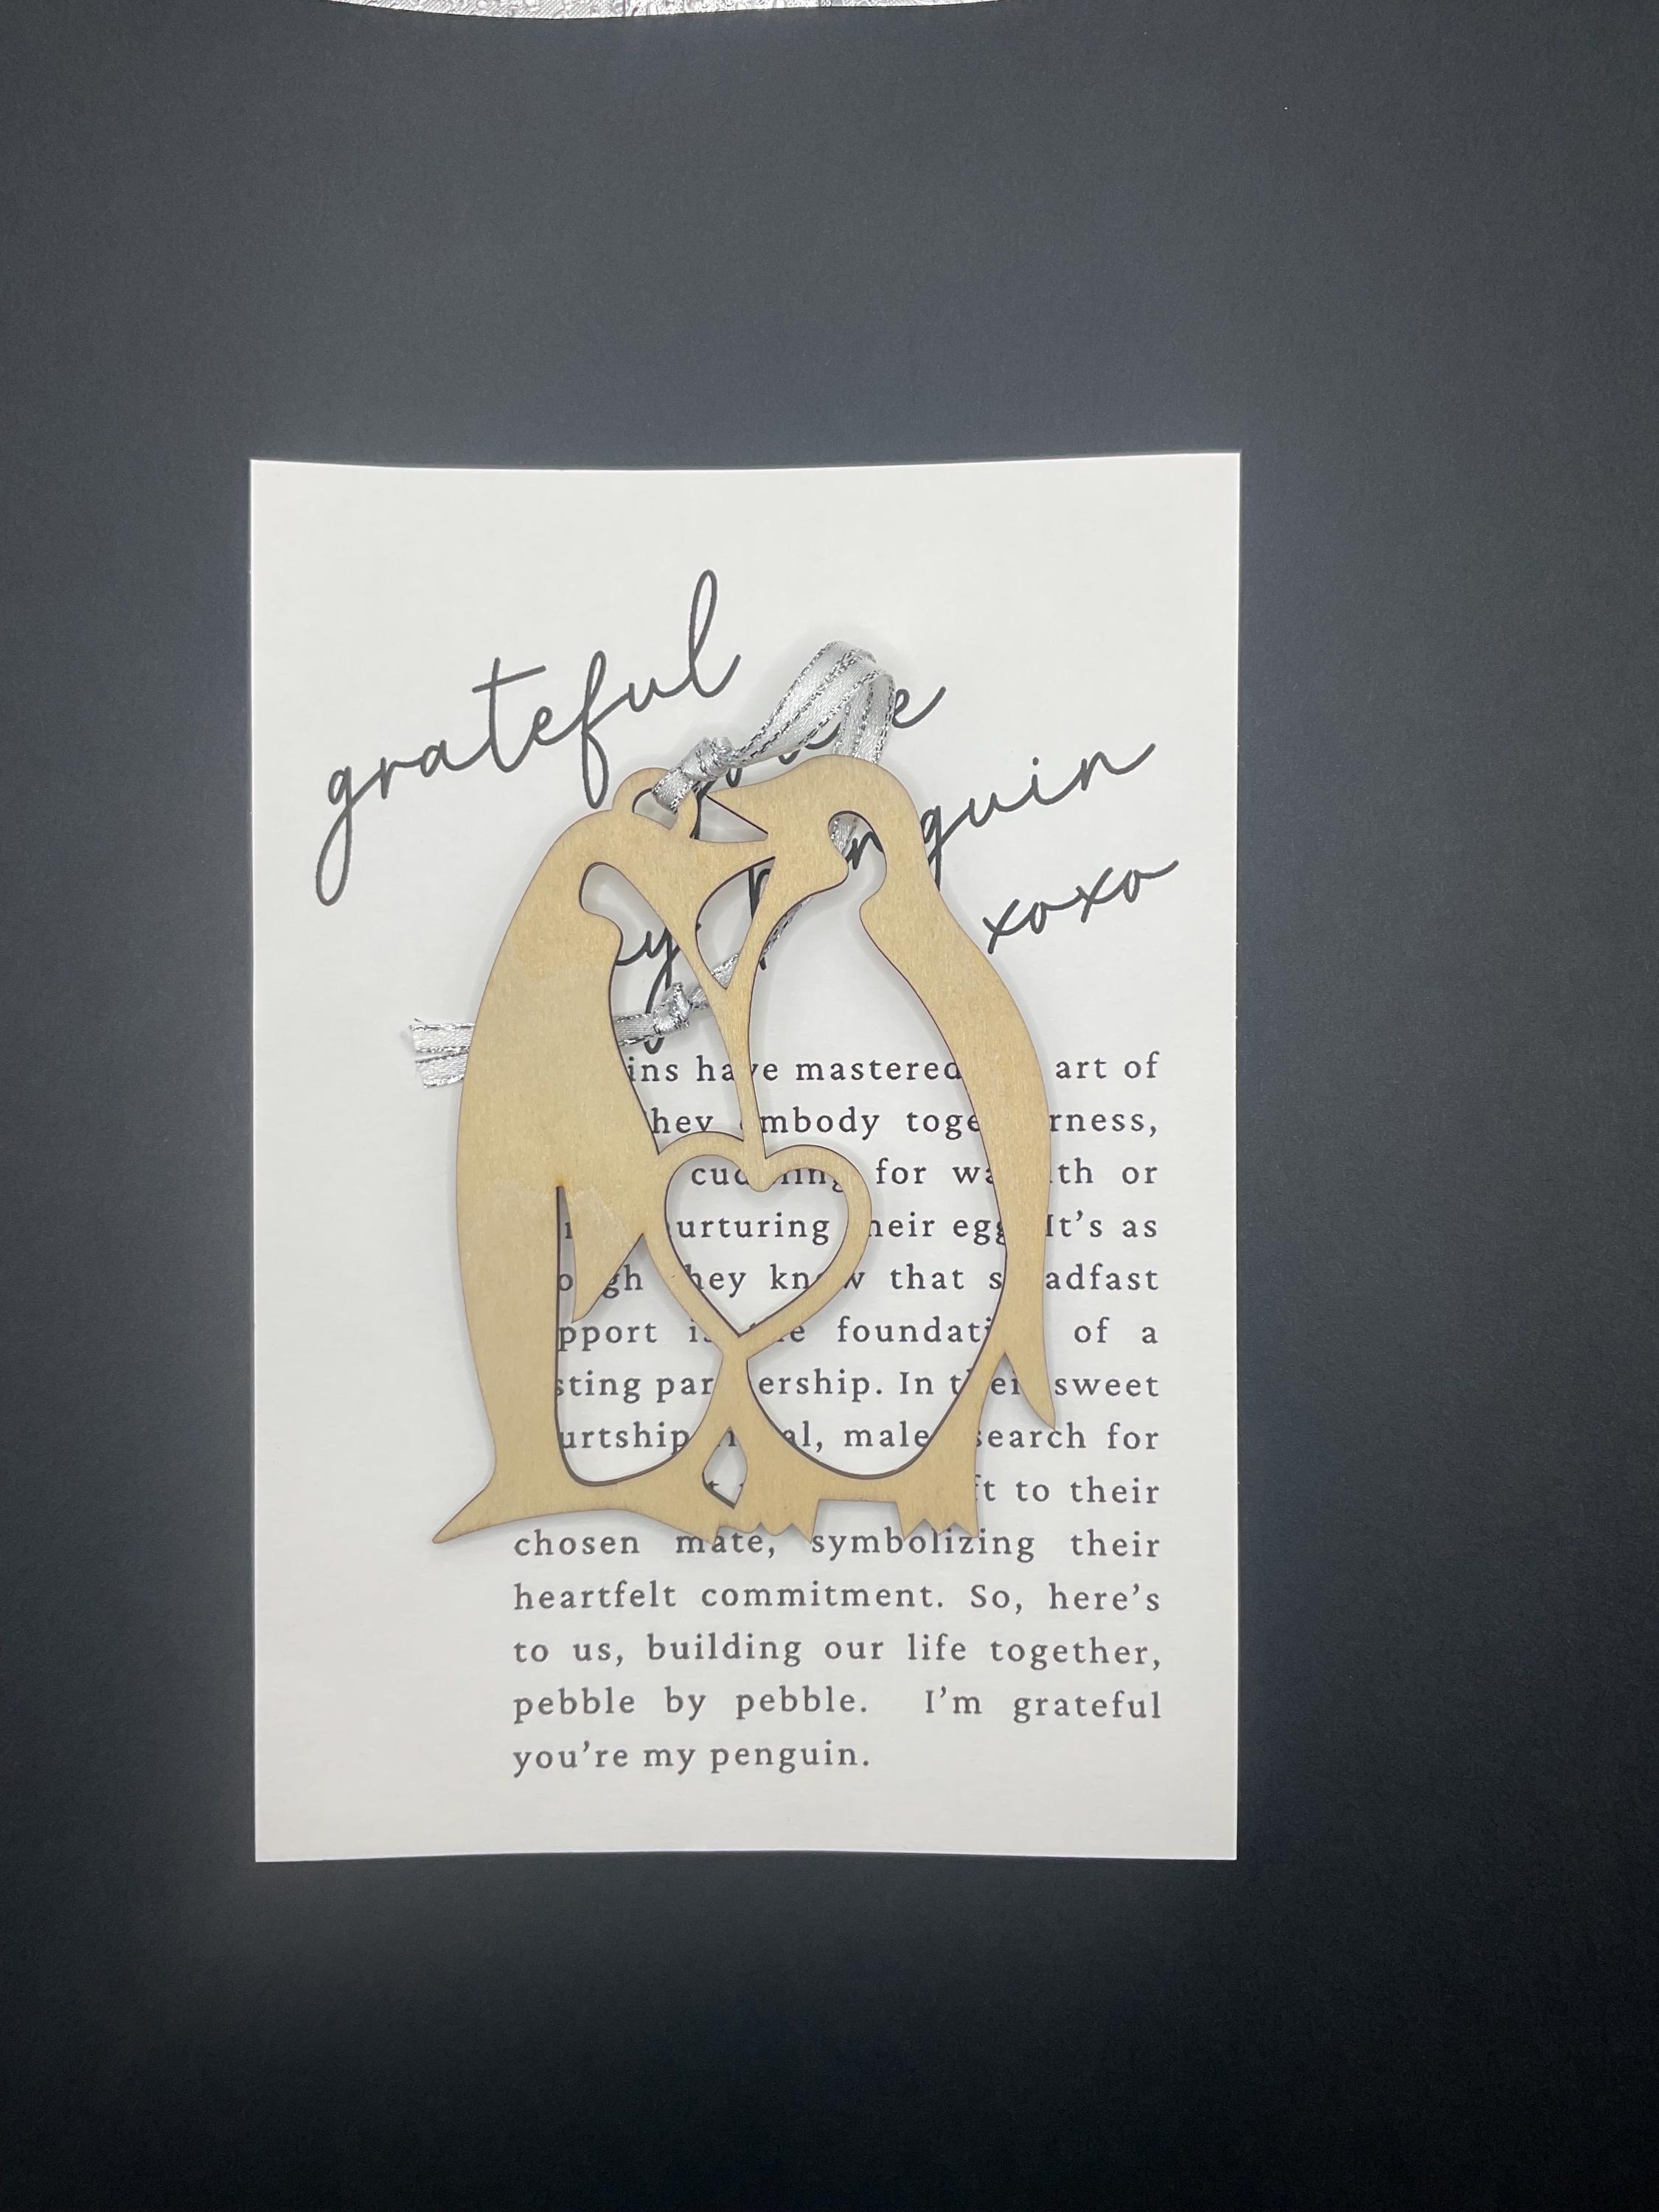 grateful
penguin
xoxo
have mastered art of
embody togetherness,
cuddling for warmth or
nurturing their egg. It's as
though they know that steadfast
support is the foundation of a
lasting partnership. In their sweet
courtship ritual, males search for
to their
chosen mate, symbolizing their
heartfelt commitment. So, here's
to us, building our life together,
pebble by pebble. I'm grateful
you're my penguin.